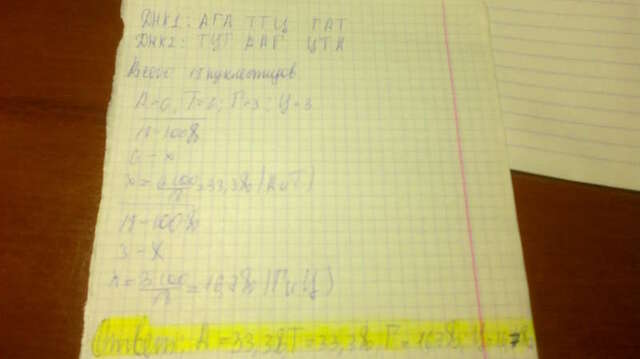 ДНК1: АГА ТТЦ ГАТ
ДНК2: ТЦТ ААГ ЦТА
Всего 18 нуклеотидов
А=6, Т=6; Г=3; Ц=3
18-100%
6-х
х=6·100/18=33,3% (А и Т)
18-100%
3-х
х=3·100/18=16,7% (Г и Ц)
Ответ: А=33,3% Т=33,3% Г=16,7% Ц=16,7%